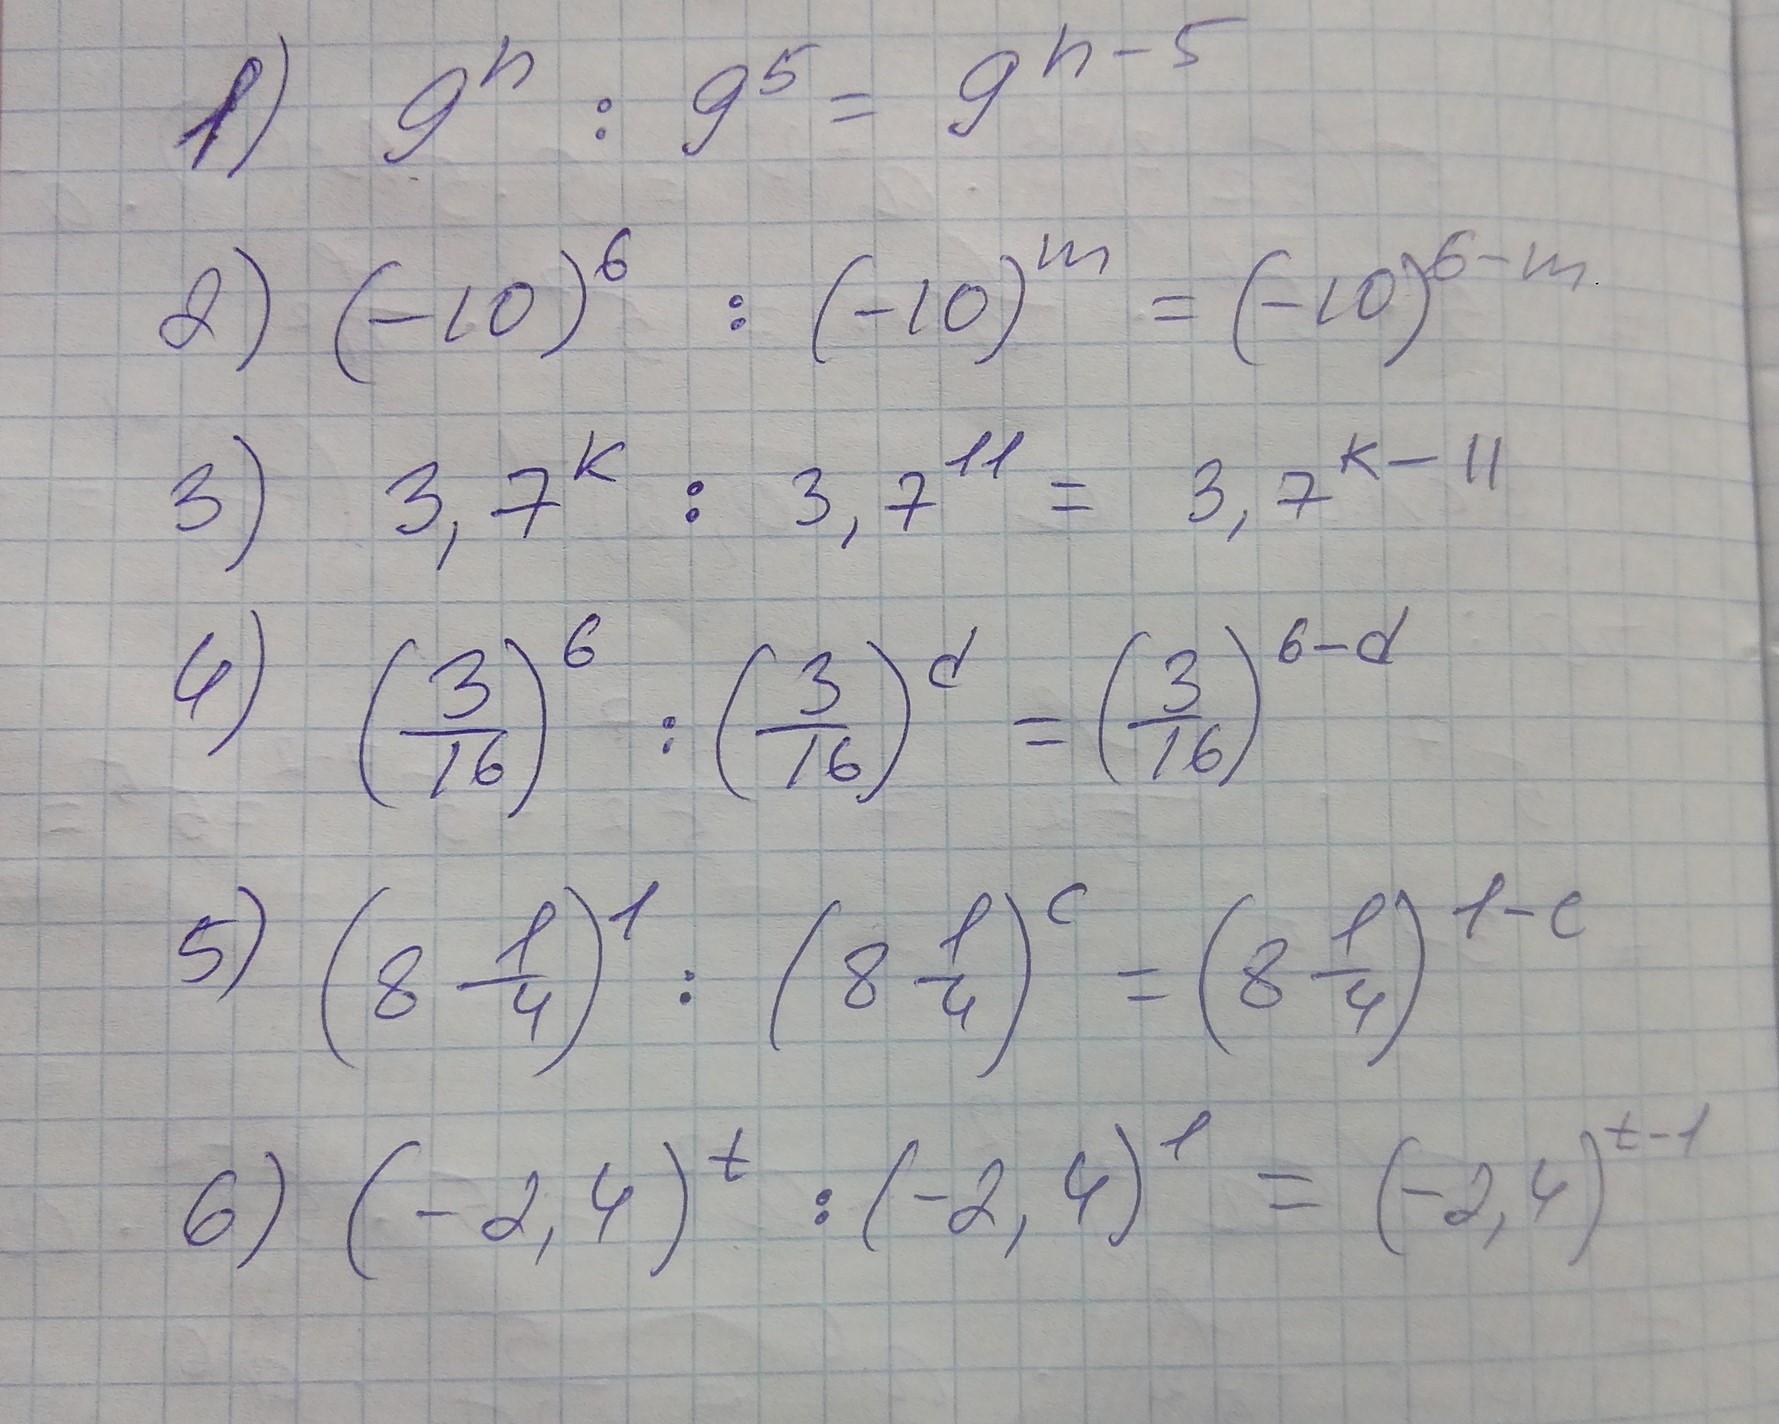 1) 9ⁿ : 9⁵ = 9ⁿ⁻⁵
2) (-10)⁶ : (-10)ᵐ = (-10)⁶⁻ᵐ
3) 3,7ᵏ : 3,7¹¹ = 3,7ᵏ⁻¹¹
4) (3/16)⁶ : (3/16)ᵈ = (3/16)⁶⁻ᵈ
5) (8 1/4)¹ : (8 1/4)ᶜ = (8 1/4)¹⁻ᶜ
6) (-2,4)ᵗ : (-2,4)¹ = (-2,4)ᵗ⁻¹